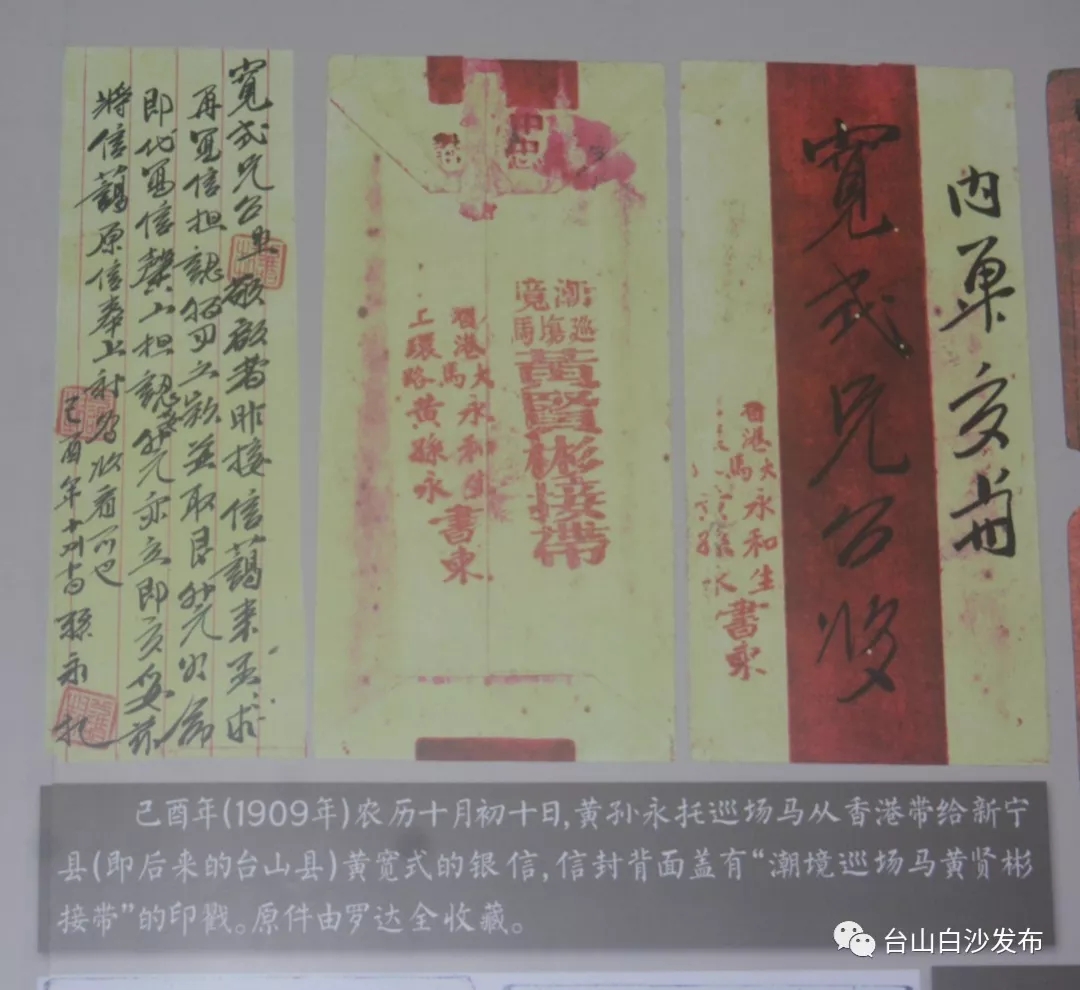 寬式兄台里敬啟者昨接信藹来求
再寫信担認之款並取艮元
即代寫信馨山担認元亦立即交妥茲
將信藹原信奉上祈收看可也
己酉年十月孫永札
潮境
巡場馬
黃賢彬接帶
香港大馬永和生書柬
上環路黃孫永
內單交册
寬式兄台收
香港大馬永和生書柬
己酉年(1909年)农历十月初十日,黄孙永托巡场马从香港带给新宁
县(即后来的台山县)黄宽式的银信,信封背面盖有“潮境巡场马黄贤彬
接带”的印戳。原件由罗达全收藏。
台山白沙发布